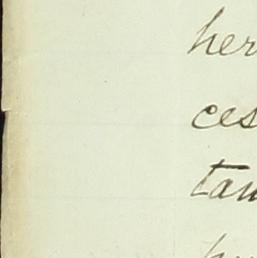 her
ces
tan